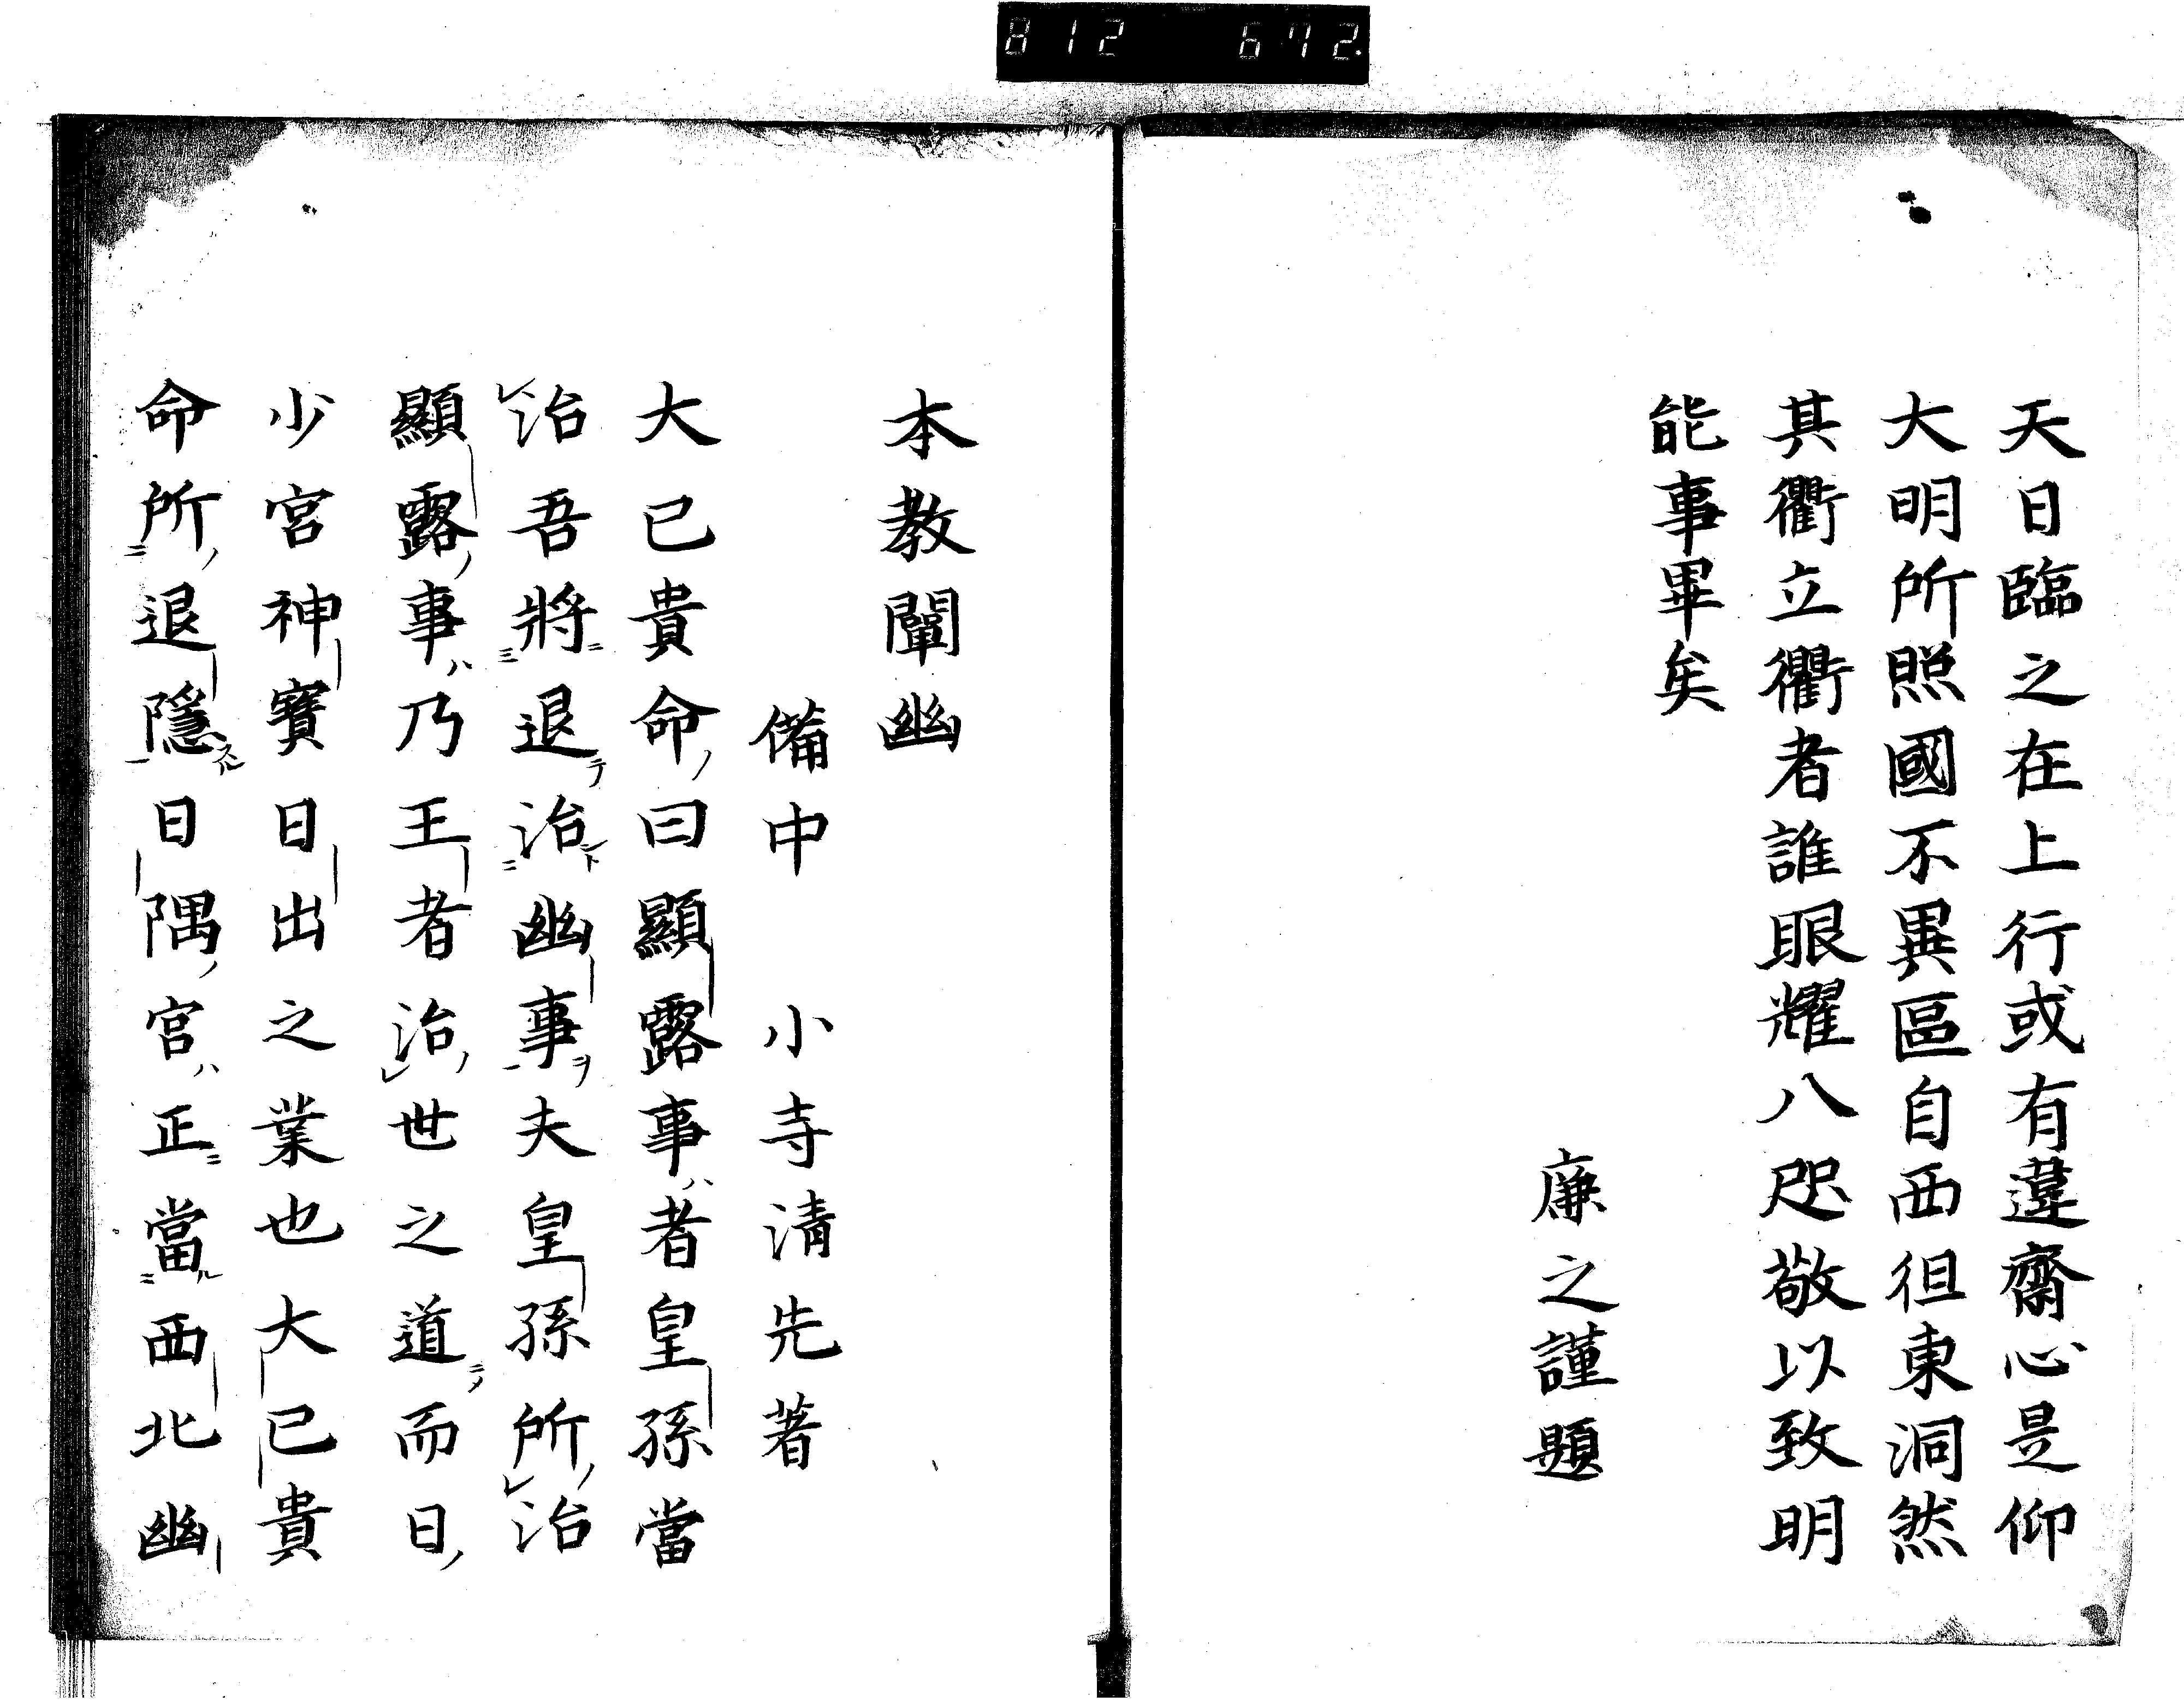 812 672.
天日臨之在上行或有違齋心是仰
大明所照國不異區自西徂東洞然
其衢立衢者誰眼耀八咫敬以致明
能事畢矣
廉之謹題
本教闡幽
備中 小寺清先著
大已貴命ノ曰顯露事ハ者皇孫當
治吾將ニ退テ治ト幽事ヲ夫皇孫所ノ治
顯露ノ事ハ乃王者治ノ世之道ニノ而日ノ
少宮神寳日出之業也大已貴
命所ノ退隱スル日隅ノ宮ハ正ニ當ル西北幽